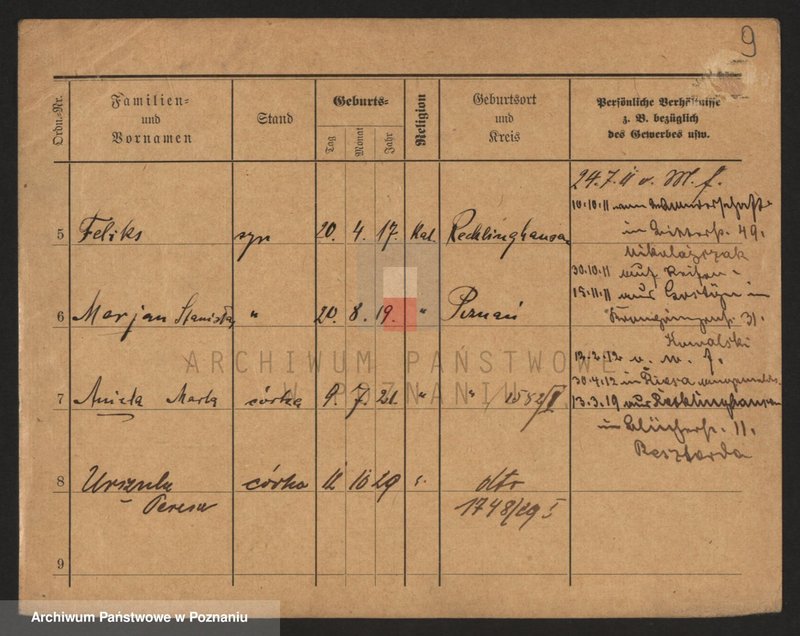 9
Ordn.-Nr.
Familien-
und
Vornamen
Stand
Geburts-
Tag
Monat
Jahr
Religion
Geburtsort
und
Kreis
Persönliche Verhältnisse
z. B. bezüglich
des Gewerbes usw.
24.7.11 v. M. f.
5 Feliks syn 20. 4. 17. Kat. Recklinghausen
10.10.11 aus Wanderschaft
in 49.
Mikołajczak
30.10.11 auf Reisen
15.11.11 aus Gostyn in
31.
6 Marjan Stanisław " 20. 8. 19. " Poznań
Kowalski
12.2.12 v. w. f.
30.4.12 in
7 Aniela Marta córka 9. 7. 21. " " 1582/II
13.3.19 aus Recklinghausen
in Blücherst. 11.
Resztorda
8 Urszula córka 12 10 29 dto
Teresa 1748/29 I
9
ARCHIWUM PAŃSTWOWE
W POZNANIU
Archiwum Państwowe w Poznaniu